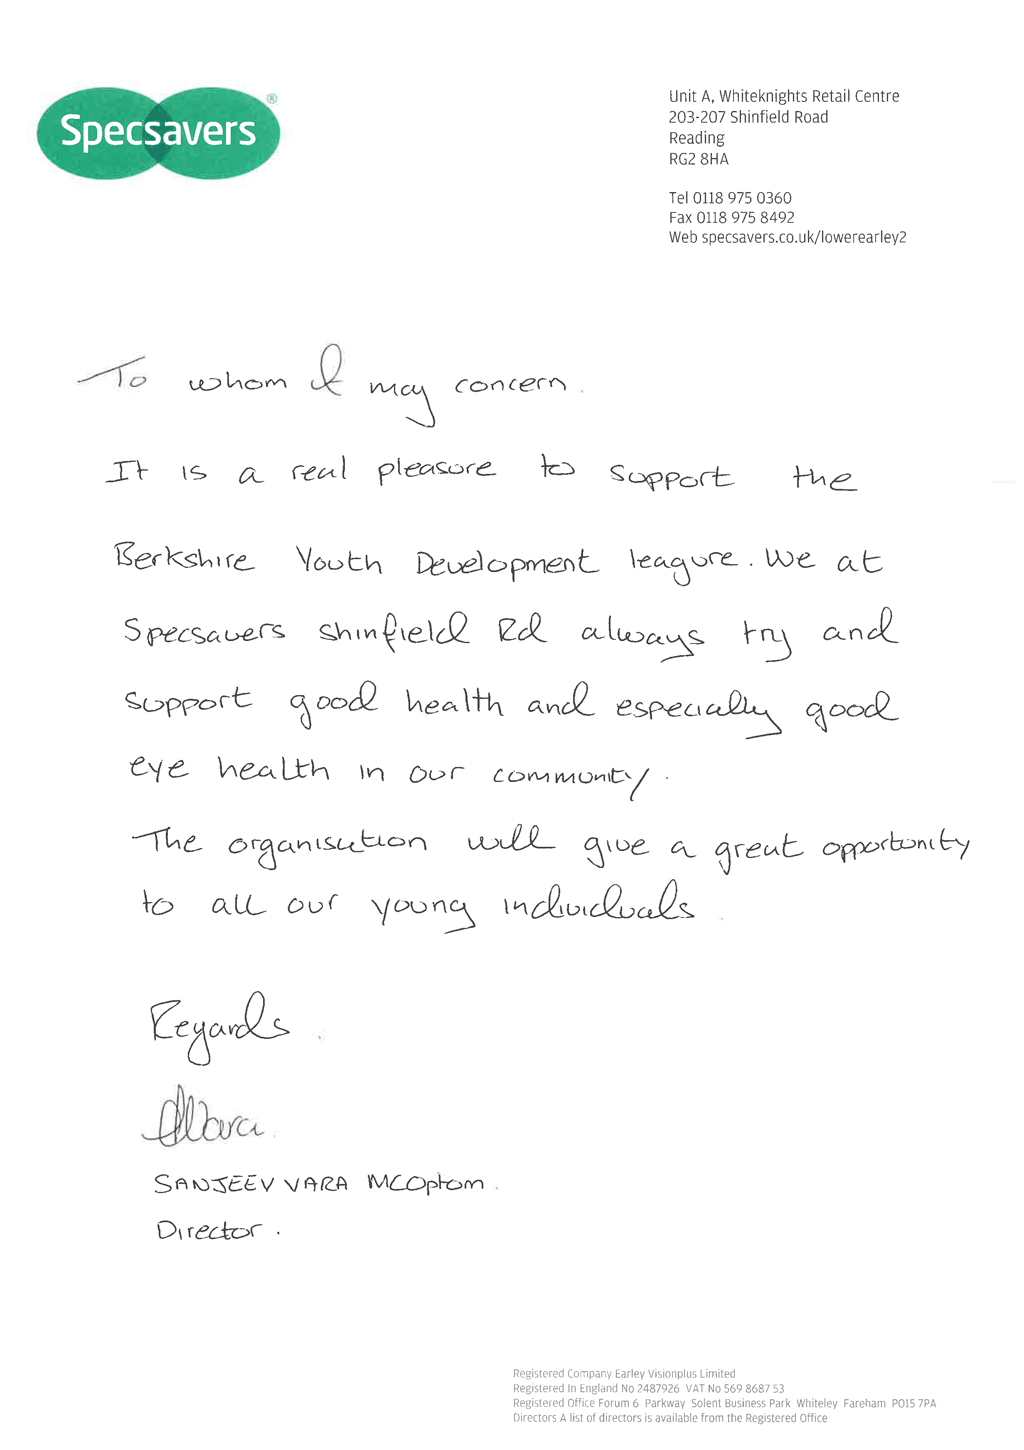 Specsavers®
Unit A, Whiteknights Retail Centre
203-207 Shinfield Road
Reading
RG2 8HA
Tel 0118 975 0360
Fax 0118 975 8492
Web specsavers.co.uk/lowerearley2
To whom it may concern.
It is a real pleasure to support the
Berkshire Youth Development leagure. We at
Specsavers shinfield Rd always try and
support good health and especially good
eye health in our community.
The organisation will give a great opportunity
to all our young individuals.
Regards.
SVara.
SANJEEV VARA MCOptom.
Director.
Registered Company Earley Visionplus Limited
Registered In England No 2487926 VAT No 569 8687 53
Registered Office Forum 6 Parkway Solent Business Park Whiteley Fareham PO15 7PA
Directors A list of directors is available from the Registered Office